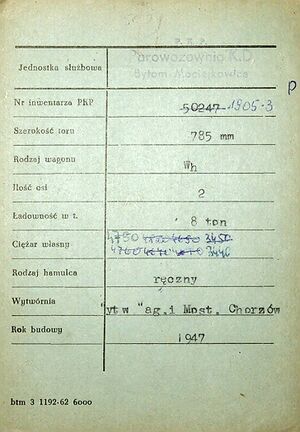 P.K.P.
Jednostka służbowa Parowozownia K.D.
Bytom-Maciejkowice
P
Nr inwentarza PKP 50247 1905-3
Szerokość toru 785 mm
Rodzaj wagonu Wh
Ilość osi 2
Ładowność w t. 8 ton
4750 3450
Ciężar własny 3440
Rodzaj hamulca ręczny
Wytwórnia "ytw "ag.i Most. Chorzów
Rok budowy 1947
btm 3 1192-62 6000